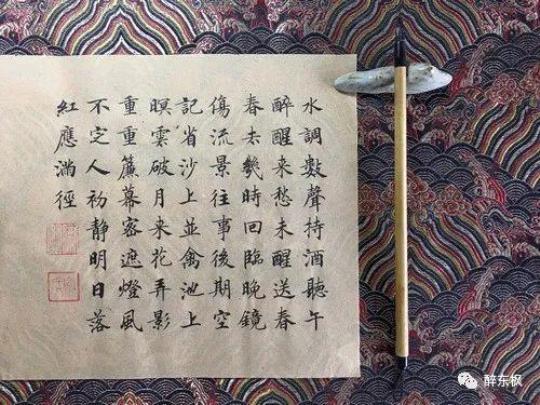 水調數聲持酒聽午
醉醒來愁未醒送春
春去幾時回臨晚鏡
傷流景往事後期空
記省沙上並禽池上
暝雲破月來花弄影
重重簾幕密遮燈風
不定人初靜明日落
紅應滿徑
醉东枫